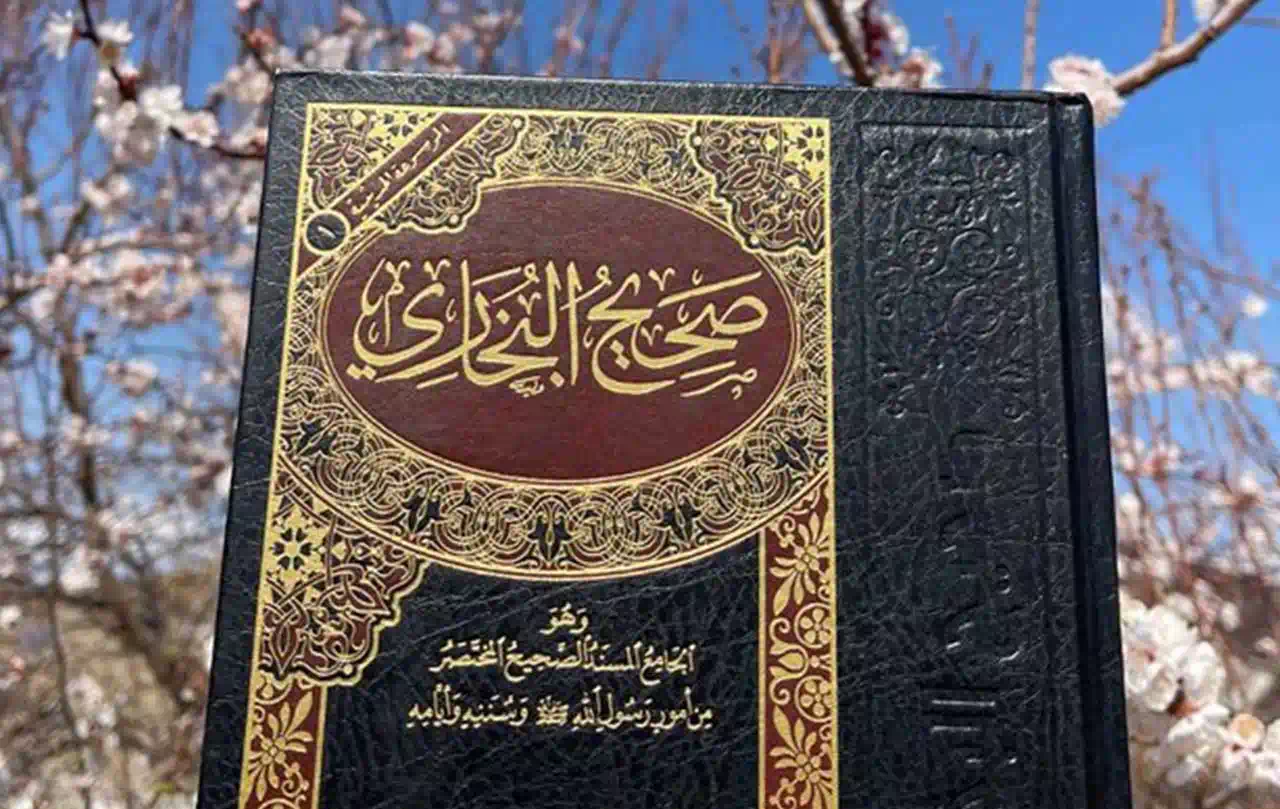 ١
صَحِيحُ البُخَارِي
وَهُوَ
الجَامِعُ المُسْنَدُ الصَّحِيحُ المُخْتَصَرُ
مِنْ أُمُورِ رَسُولِ اللهِ ﷺ وَسُنَنِهِ وَأَيَّامِهِ